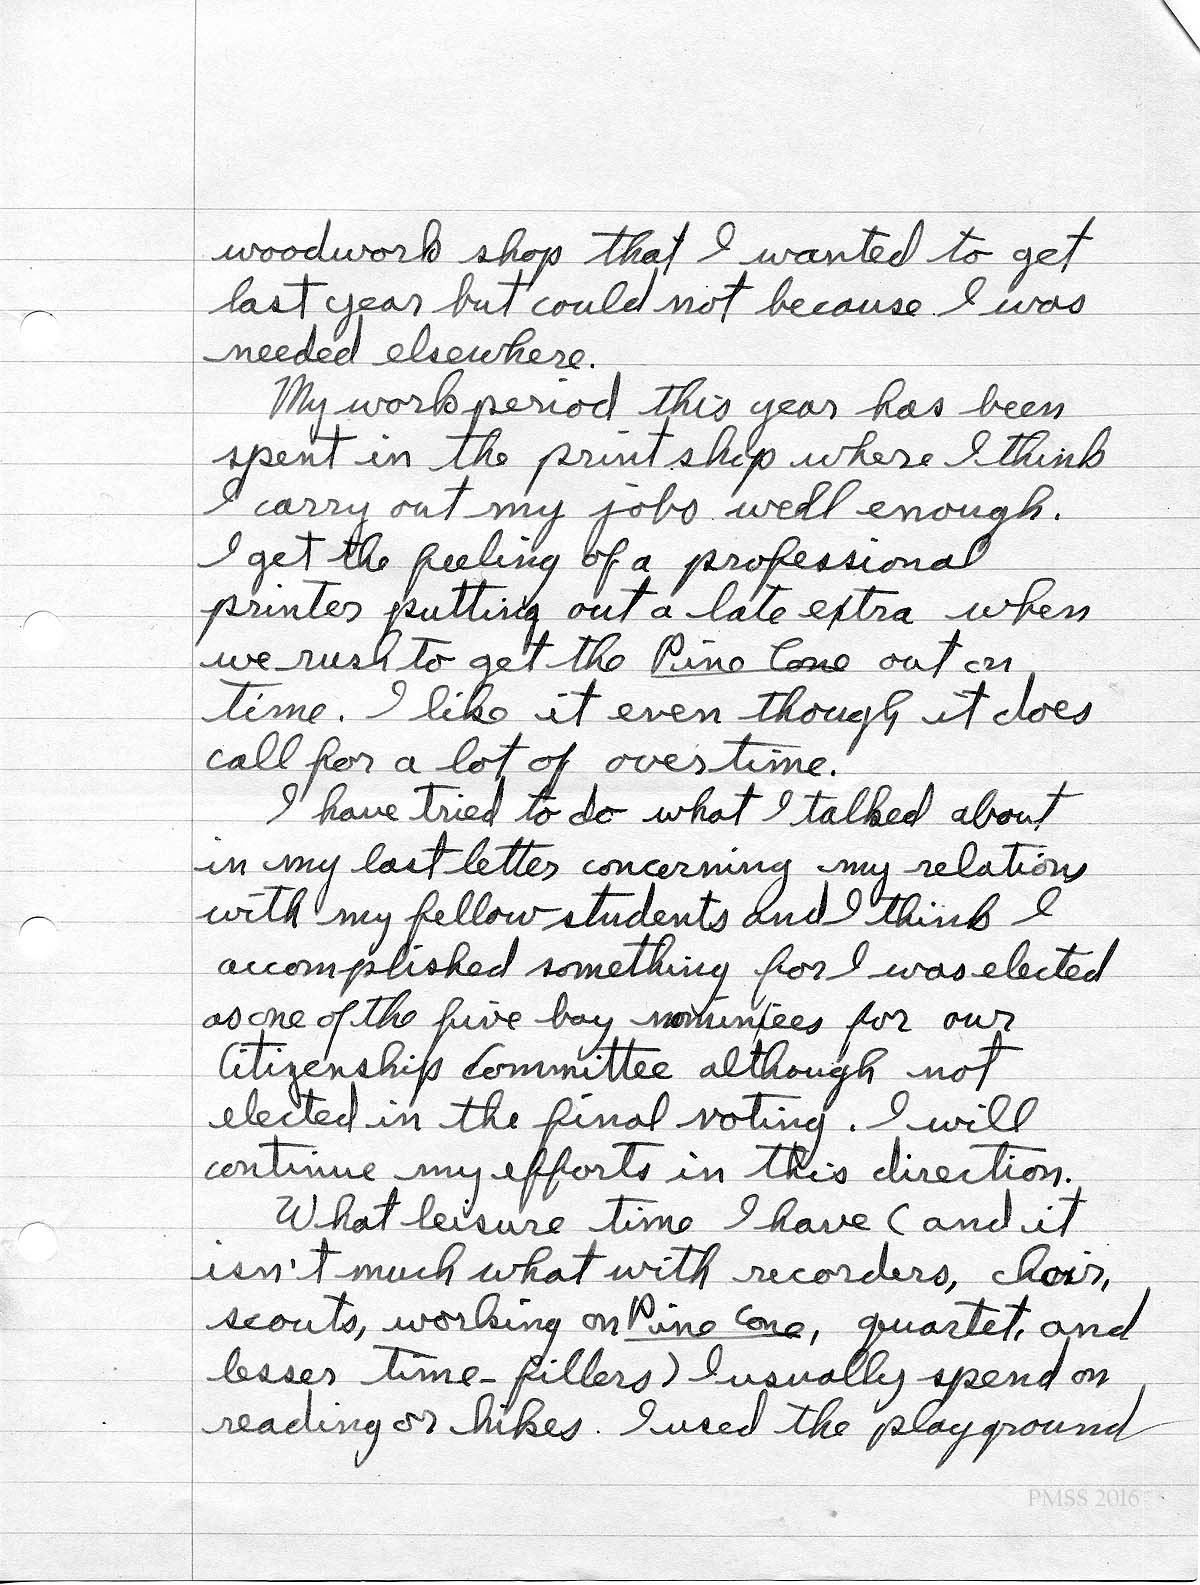 woodwork shop that I wanted to get
last year but could not because I was
needed elsewhere.
My work period this year has been
spent in the print shop where I think
I carry out my jobs well enough.
I get the feeling of a professional
printer putting out a late extra when
we rush to get the Pine Cone out on
time. I like it even though it does
call for a lot of overtime.
I have tried to do what I talked about
in my last letter concerning my relations
with my fellow students and I think I
accomplished something for I was elected
as one of the five boy nominees for our
Citizenship Committee although not
elected in the final voting. I will
continue my efforts in this direction.
What leisure time I have (and it
isn't much what with recorders, choir,
scouts, working on Pine Cone, quartet, and
lesser time-fillers) I usually spend on
reading or hikes. I used the playground
PMSS 2016